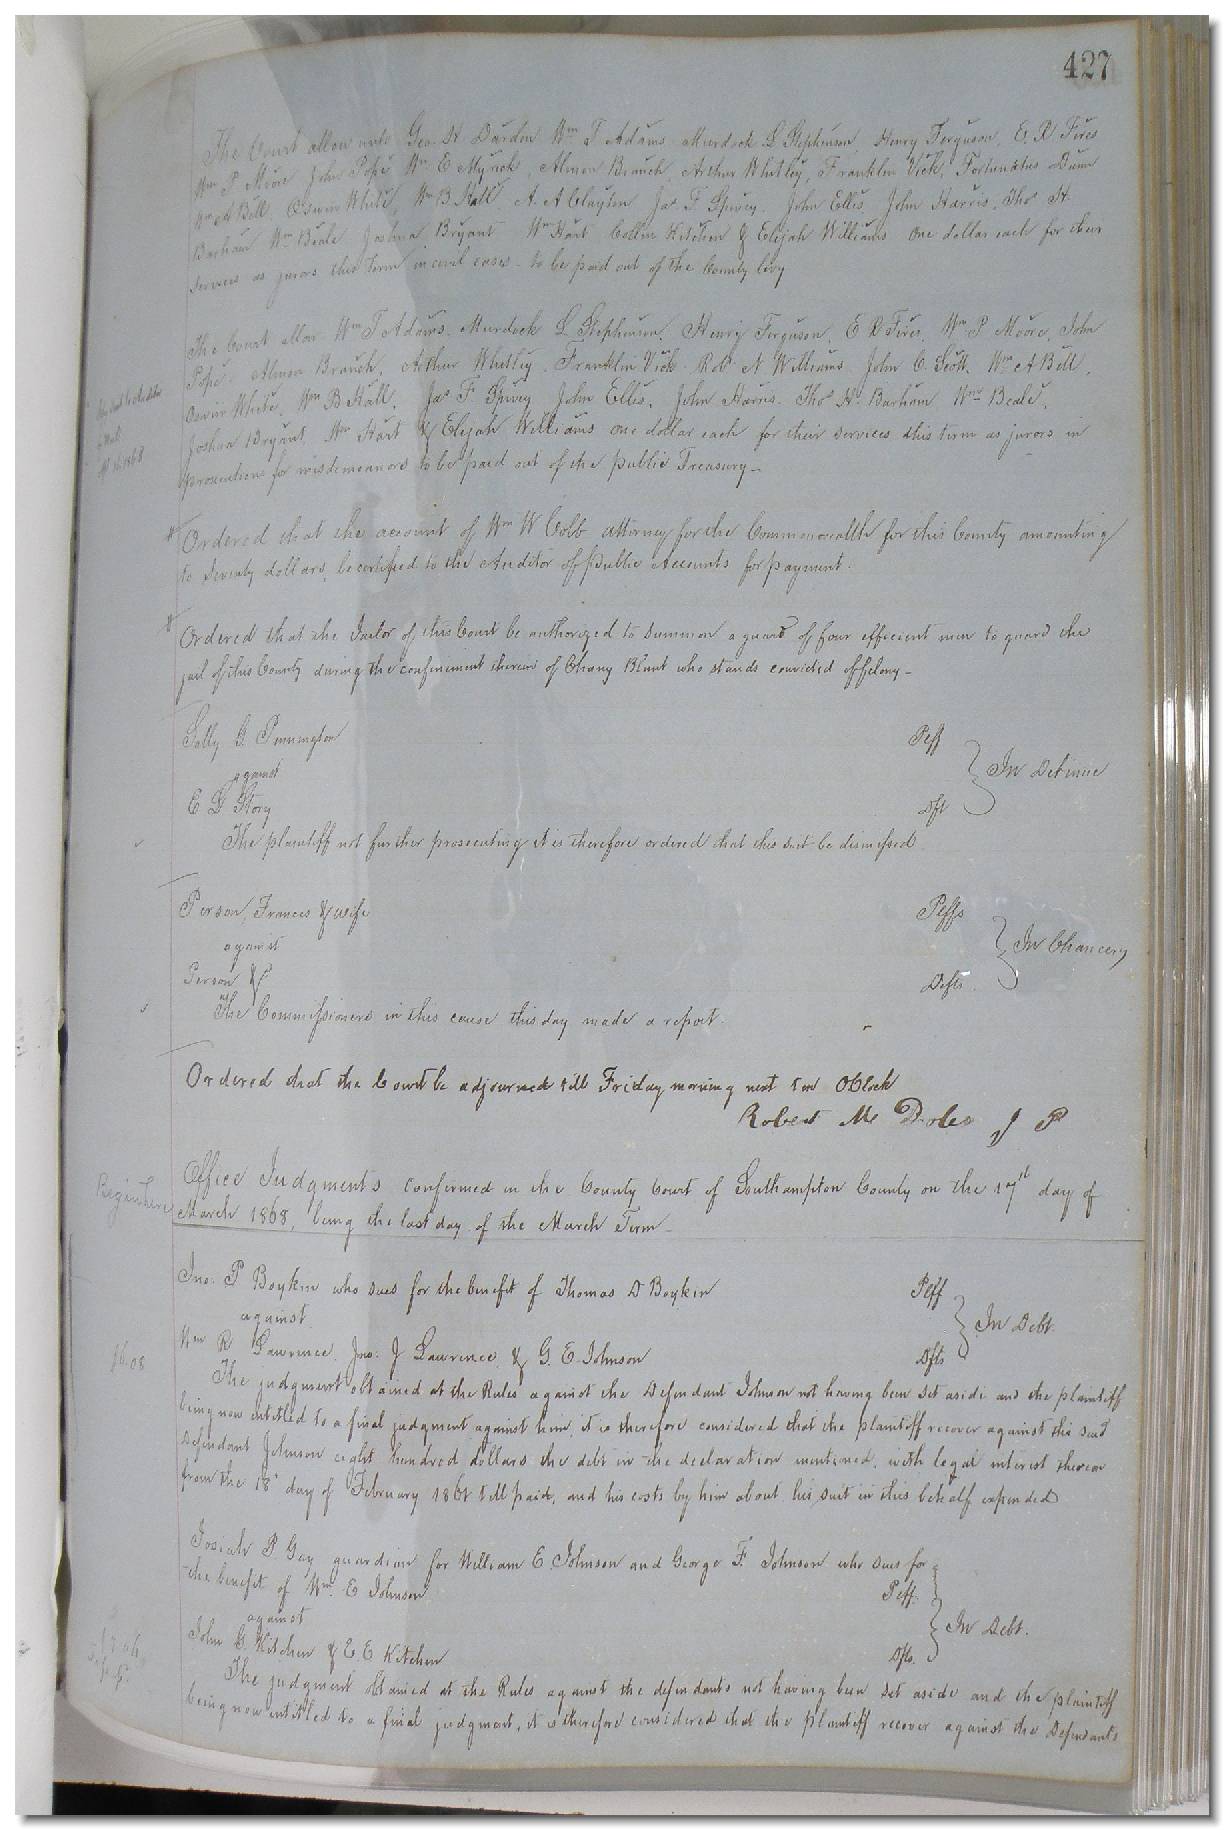 427
The Court allow unto Geo. H. Darden Wm T Adams Murdock L Stephenson, Henry Ferguson, E. R Fires
Wm P Moore John Pope Wm E Myrick, Almon Branch, Arthur Whitley, Franklin Vick, Fortunatus Dunn
Wm A Bell. Oswin White, Wm B Hall, A. A Clayton Jas F. Spivey. John Ellis, John Harris, Thos H.
Barham Wm Beale Joshua Bryant Wm Hart Collin Kitchen & Elijah Williams one dollar each for their
services as jurors this Term in civil cases - to be paid out of the County levy
The Court allow Wm T Adams. Murdock L Stephenson, Henry Ferguson, E R Fires, Wm P Moore, John
Pope. Almon Branch, Arthur Whitley. Franklin Vick Rob. N Williams John C. Scott, Wm A Bell,
Oswin White, Wm B Hall, Jas F. Spivey John Ellis, John Harris. Thos H. Barham Wm Beale,
Joshua Bryant, Wm Hart & Elijah Williams one dollar each for their services this term as jurors in
prosecutions for misdemeanors to be paid out of the public Treasury -
Ordered that the account of Wm W Cobb attorney for the Commonwealth for this County amounting
to Seventy dollars, be certified to the Auditor of Public Accounts for payment.
Ordered that the Jailor of this Court be authorized to summon a guard of four efficient men to guard the
jail of this County during the confinement therein of Chany Blunt who stands convicted of felony -
Sally G. Pennington Plff
against In Detinue
E L Story Dft
The plaintiff not further prosecuting it is therefore ordered that this suit be dismissed
Person, Frances & wife Plffs
against In Chancery
Person &c Defts.
The Commissioners in this cause this day made a report.
Ordered that the Court be adjourned till Friday morning next ten O Clock
Robert M Doles J P
Begin here
Office Judgments confirmed in the County Court of Southampton County on the 17th day of
March 1868, being the last day of the March Term
Jno. P Boykin who sues for the benefit of Thomas D Boykin Plff
against In Debt.
Wm R Lawrence, Jno. J Lawrence, & G. E. Johnson Dfts
The judgment obtained at the Rules against the Defendant Johnson not having been set aside and the plaintiff
being now entitled to a final judgment against him, it is therefore considered that the plaintiff recover against the said
Defendant Johnson eight hundred dollars the debt in the declaration mentioned, with legal interest thereon
from the 18th day of February 1861 till paid, and his costs by him about his suit in this behalf expended
Josiah P Gay guardian for William E. Johnson and George F. Johnson who sues for
the benefit of Wm. E Johnson Plff.
against In Debt.
John G. Kitchen & E. E Kitchen Dfts.
The judgment obtained at the Rules against the defendants not having been set aside and the plaintiff
being now entitled to a final judgment, it is therefore considered that the plaintiff recover against the Defendants